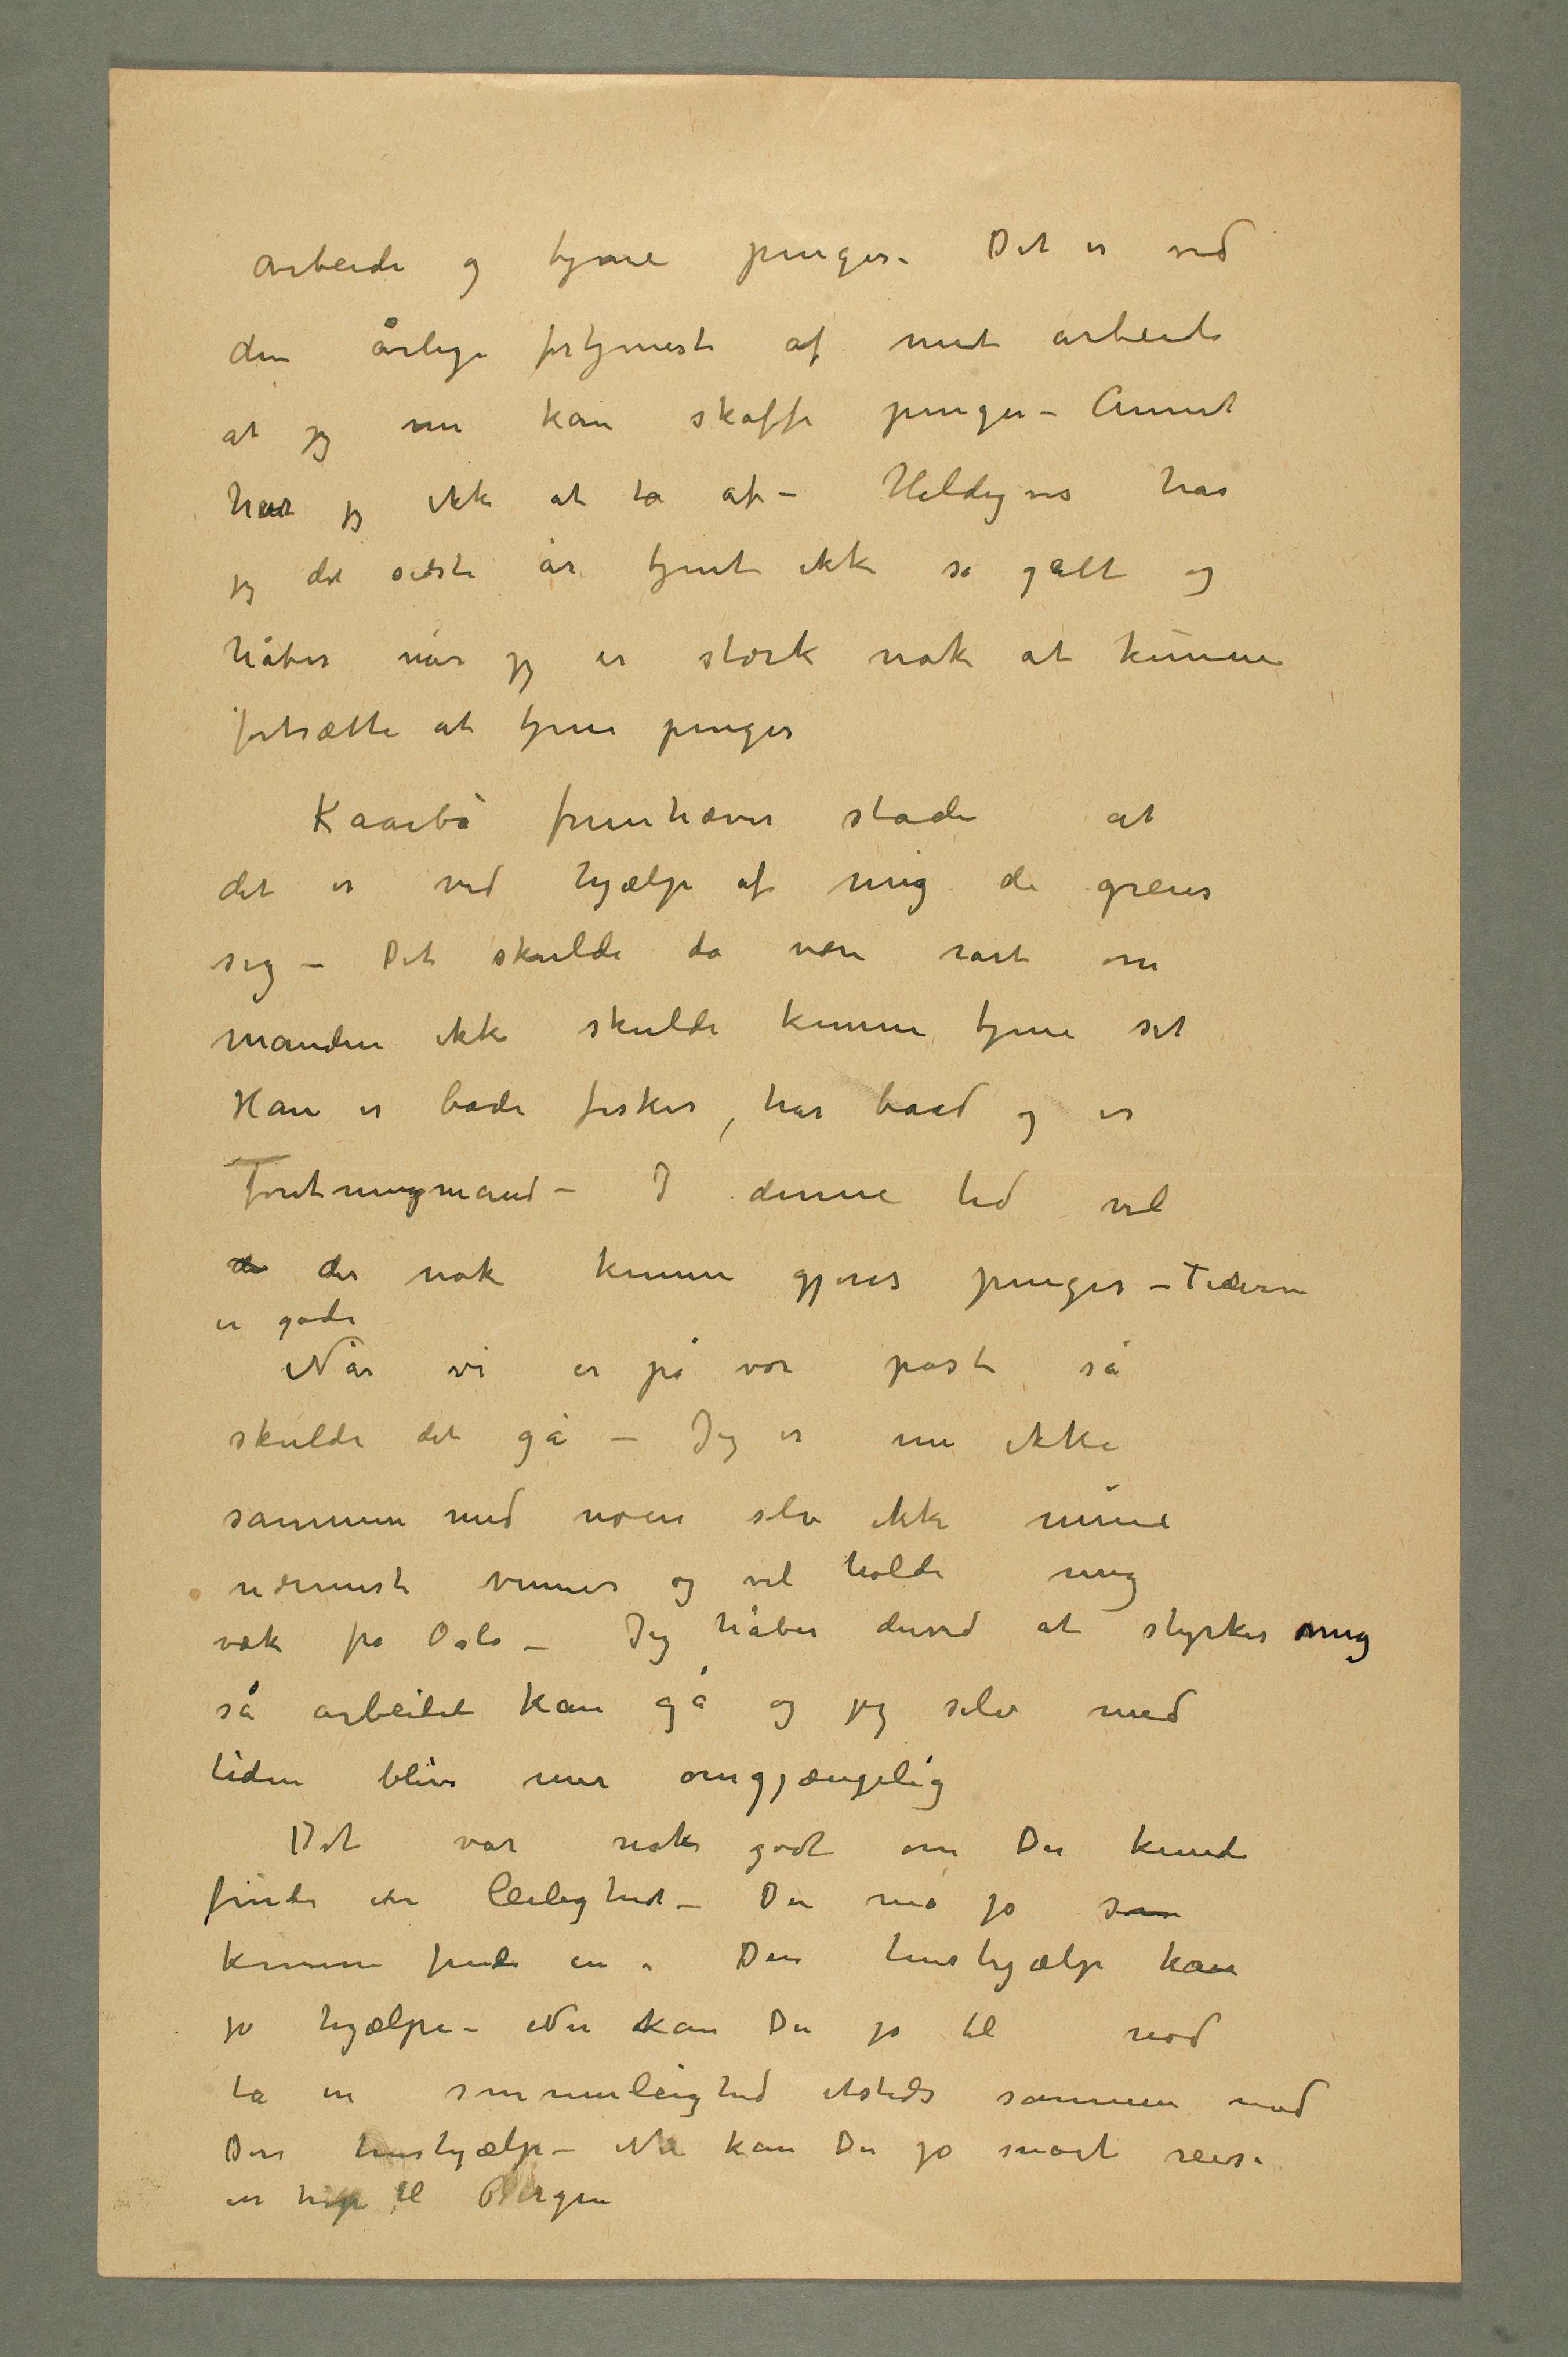 arbeide og tjene penger. Det er ved
den årlige fortjeneste af mit arbeide
at jeg nu kan skaffe penger – Annet
har jeg ikke at ta af – Heldigvis har
jeg det sidste år tjent ikke så galt og
håber når jeg er stærk nok at kunne
fortsætte at tjene penger
Kaarbö fremhæver stadig at
det er ved hjælp af mig de greier
sig – Det skulde da være rart om
manden ikke skulde kunne tjene sit
Han er både fisker, har baad og er
Foretningmand – I denne tid vil
der nok kunne gjøres penger – Tiderne
er gode
Når vi er på vor post så
skulde det gå – Jeg er nu ikke
sammen med noen selv ikke mine
nærmeste venner og vil holde mig
væk fra Oslo – Jeg håber derved at styrke mig
så arbeidet kan gå og jeg selv med
tiden blive mer omgjængelig
Det var nok godt om Du kunde
finde en leilighed – Du må jo
kunne finde en. Din hushjælp kan
jo hjælpe – Nu kan Du jo til nød
ta en sommerleilighed etsteds sammen med
Din hushjælp – Nu kan Du jo snart reise
en tur til Bergen